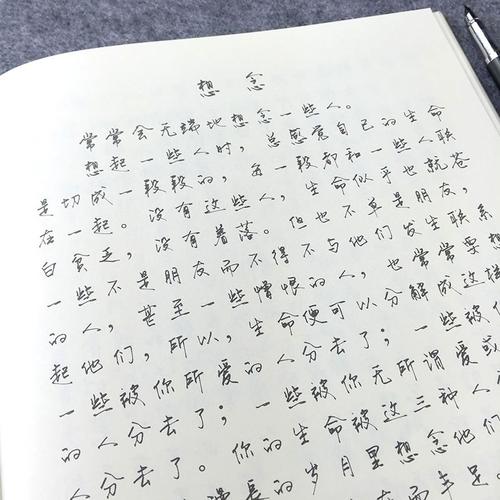 想念
常常会无端地想念一些人。
想起一些人时,总感觉自己的生命
是切成一段段的,每一段都和一些人联
在一起。没有这些人,生命似乎也就苍
白贫乏,没有着落。但也不单是朋友,
一些不是朋友而不得不与他们发生联系
的人,甚至一些憎恨的人,也常常要想
起他们,所以,生命便可以分解成这样
一些被你所爱的人分去了;一些被
的人分去了;一些被你无所谓爱或
人分去了。你的生命被这三种人
漫长的岁月里想念他们